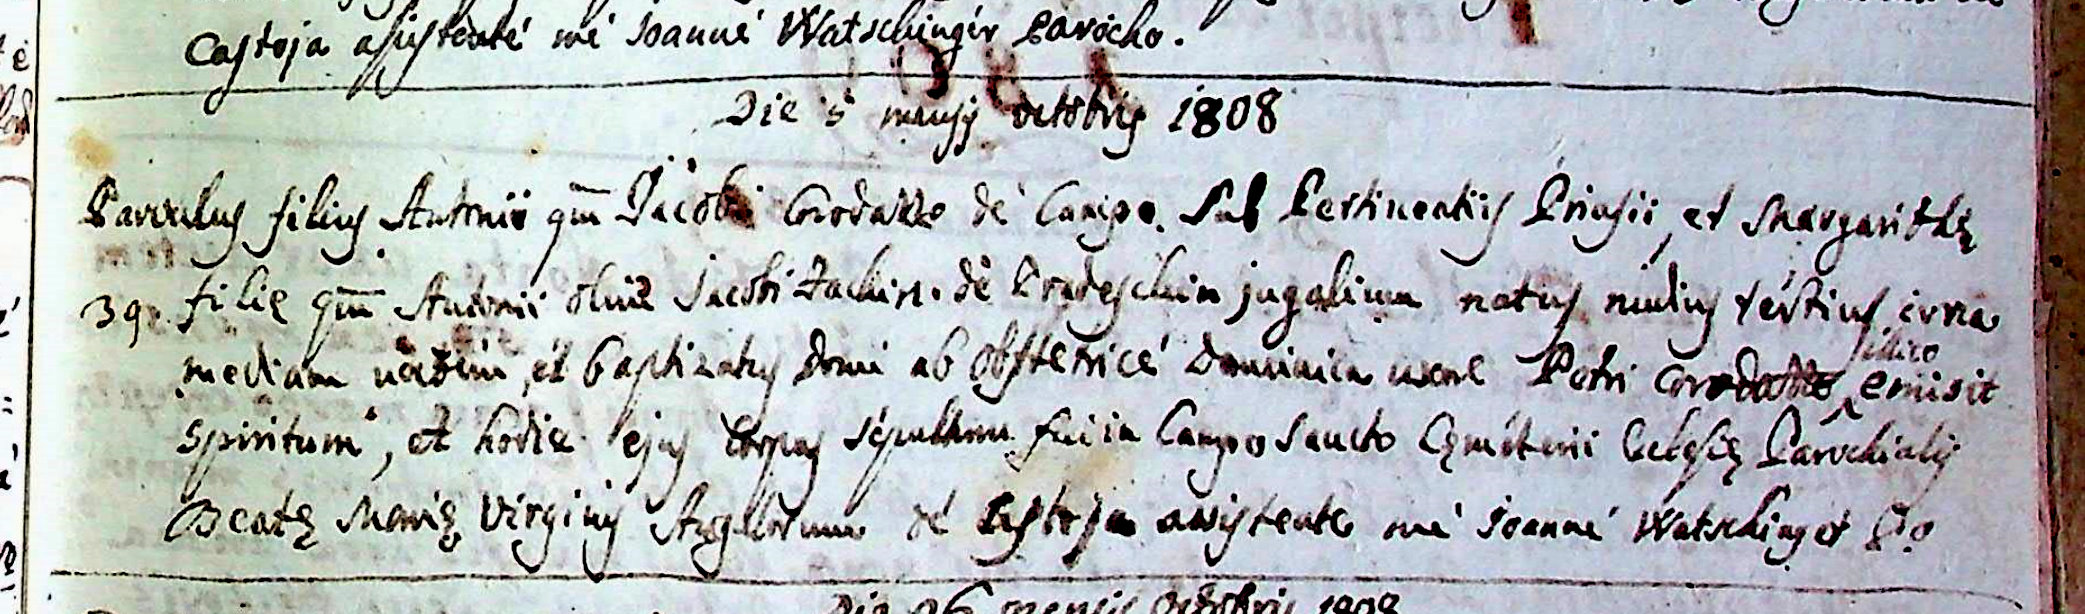 Castoja assistente me Joanne Watschinger Parocho.
Die 5 mensis octobris 1808
Parvulus filius Antonii qm Jacobi Corodazzo de Campo sub Pertinentiis Priusii, et Margarithę
39. filię qm Antonii olim Jacobi de jugalium natus nudius tertius circa
mediam noctem, et baptizatus domi ab obstetrice Dominica uxore Petri Corodazzo illico emisit
spiritum, et hodie ejus Corpus sepultum fui in Campo Sancto Cęmeterii Eclesię Parochialis
Beatę Marię Virginis Angelorum de Castoja assistente me Joanne Watschinger Po
Die 26 mensis octobris 1808